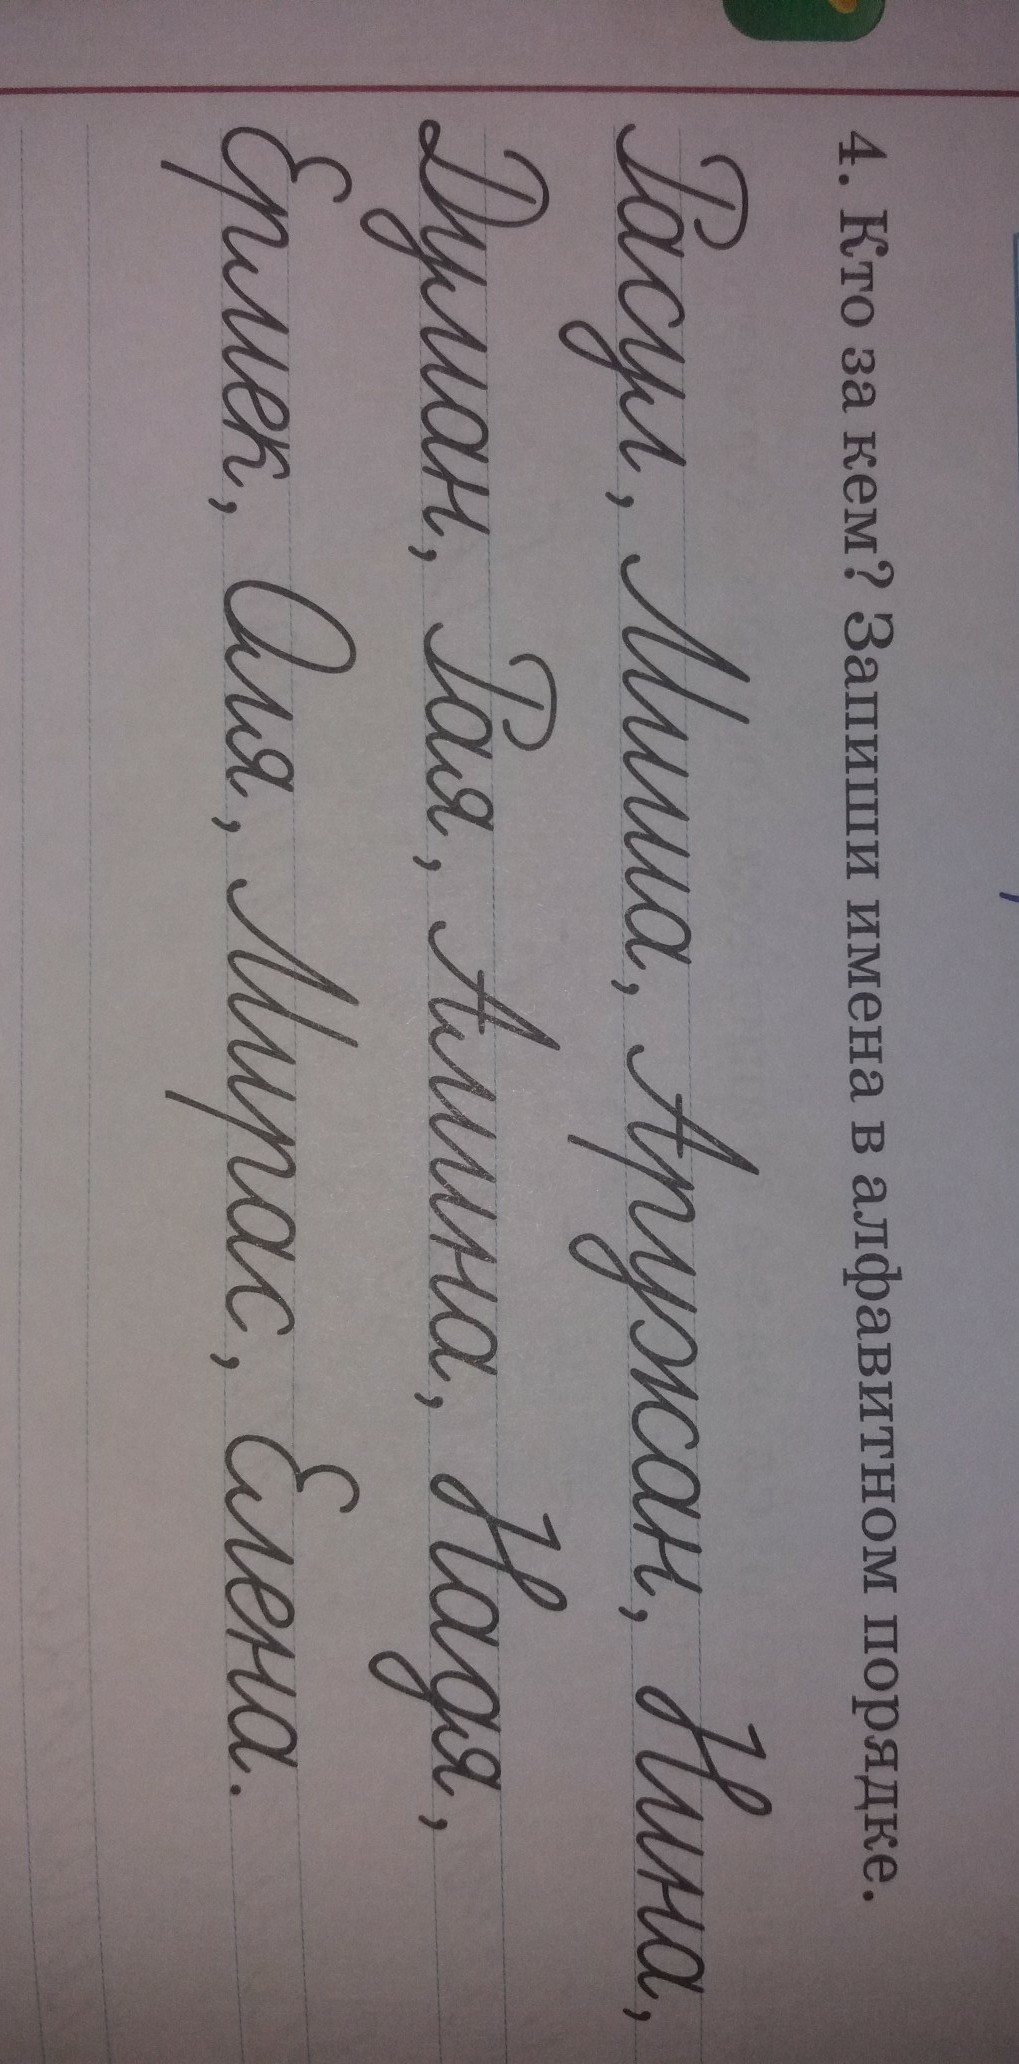 4. Кто за кем? Запиши имена в алфавитном порядке.
Расул, Миша, Аружан, Нина,
Дурман, Рая, Алина, Надя,
Ермек, Оля, Мирас, Елена.